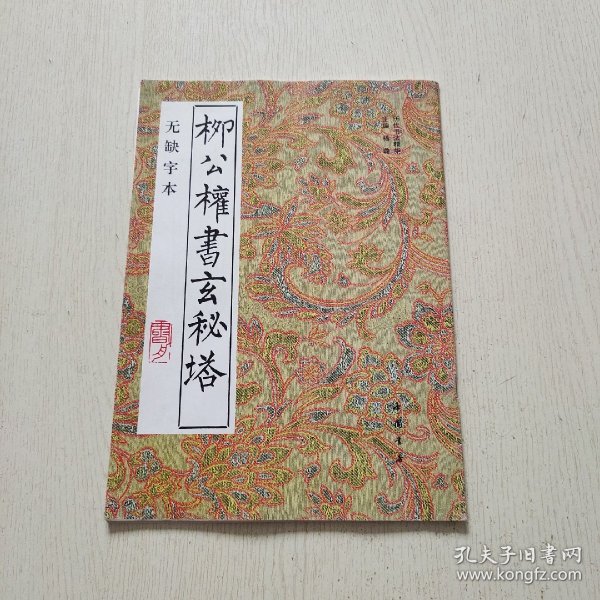 柳公權書玄秘塔
无缺字本
中國書店
孔夫子旧书网
www.kongfz.com